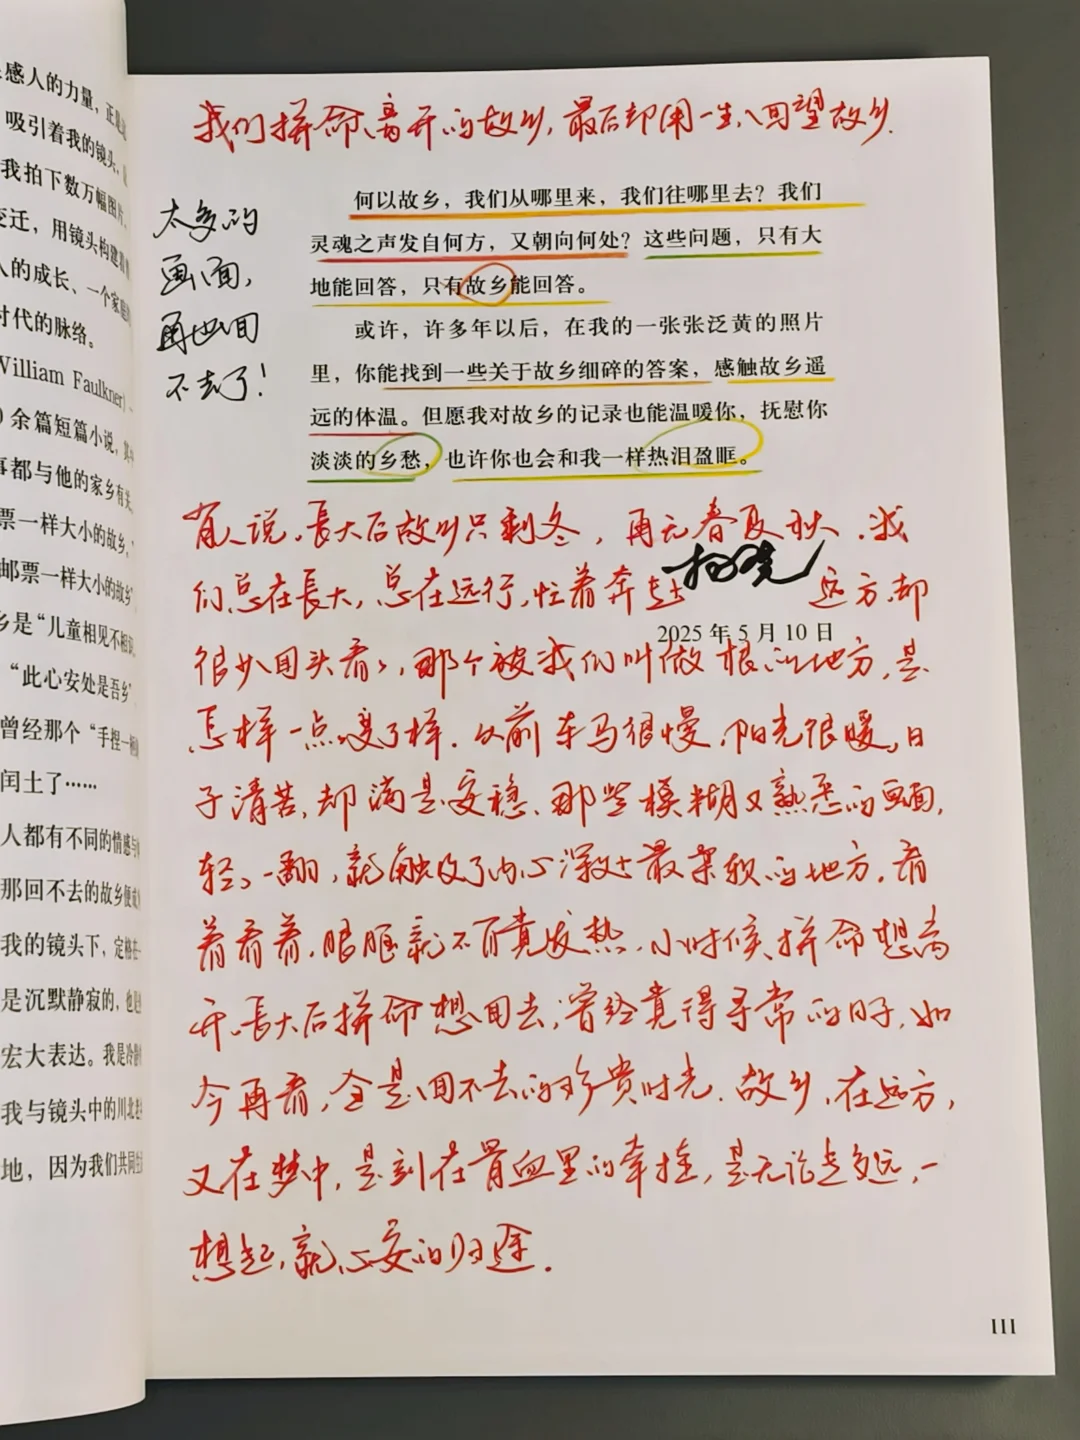 感人的力量，正是
吸引着我的镜头，
我拍下数万幅图片，
变迁，用镜头构建
人的成长、一个家庭
时代的脉络。
William Faulkner）
0 余篇短篇小说，其
事都与他的家乡有关
票一样大小的故乡，
邮票一样大小的故乡
乡是“儿童相见不相识
“此心安处是吾乡
曾经那个“手捏一柄
闰土了……
人都有不同的情感与
那回不去的故乡便
我的镜头下，定格在一
是沉默静寂的，也是
宏大表达。我是冷静
我与镜头中的川北
地，因为我们共同
我们拼命离开的故乡，最后却用一生回望故乡.
太多的
画面，
再也回
不去了！
何以故乡，我们从哪里来，我们往哪里去？我们
灵魂之声发自何方，又朝向何处？这些问题，只有大
地能回答，只有故乡能回答。
或许，许多年以后，在我的一张张泛黄的照片
里，你能找到一些关于故乡细碎的答案，感触故乡遥
远的体温。但愿我对故乡的记录也能温暖你，抚慰你
淡淡的乡愁，也许你也会和我一样热泪盈眶。
有人说，長大后故乡只剩冬，再无春夏秋.我
们总在長大，总在远行，忙着奔赴远方，却
2025 年 5 月 10 日
很少回头看看，那个被我们叫做根的地方，是
怎样一点点变了样.从前车马很慢，阳光很暖，日
子清苦，却满是安稳.那些模糊又熟悉的画面，
轻轻一翻，就触及了内心深处最柔软的地方.看
着看着，眼眶就不自觉发热.小时候拼命想离
开，長大后拼命想回去；曾经觉得寻常的日子，如
今再看，全是回不去的珍贵时光.故乡，在远方，
又在梦中，是刻在骨血里的牵挂，是无论走多远，一
想起，就心安的归途.
111